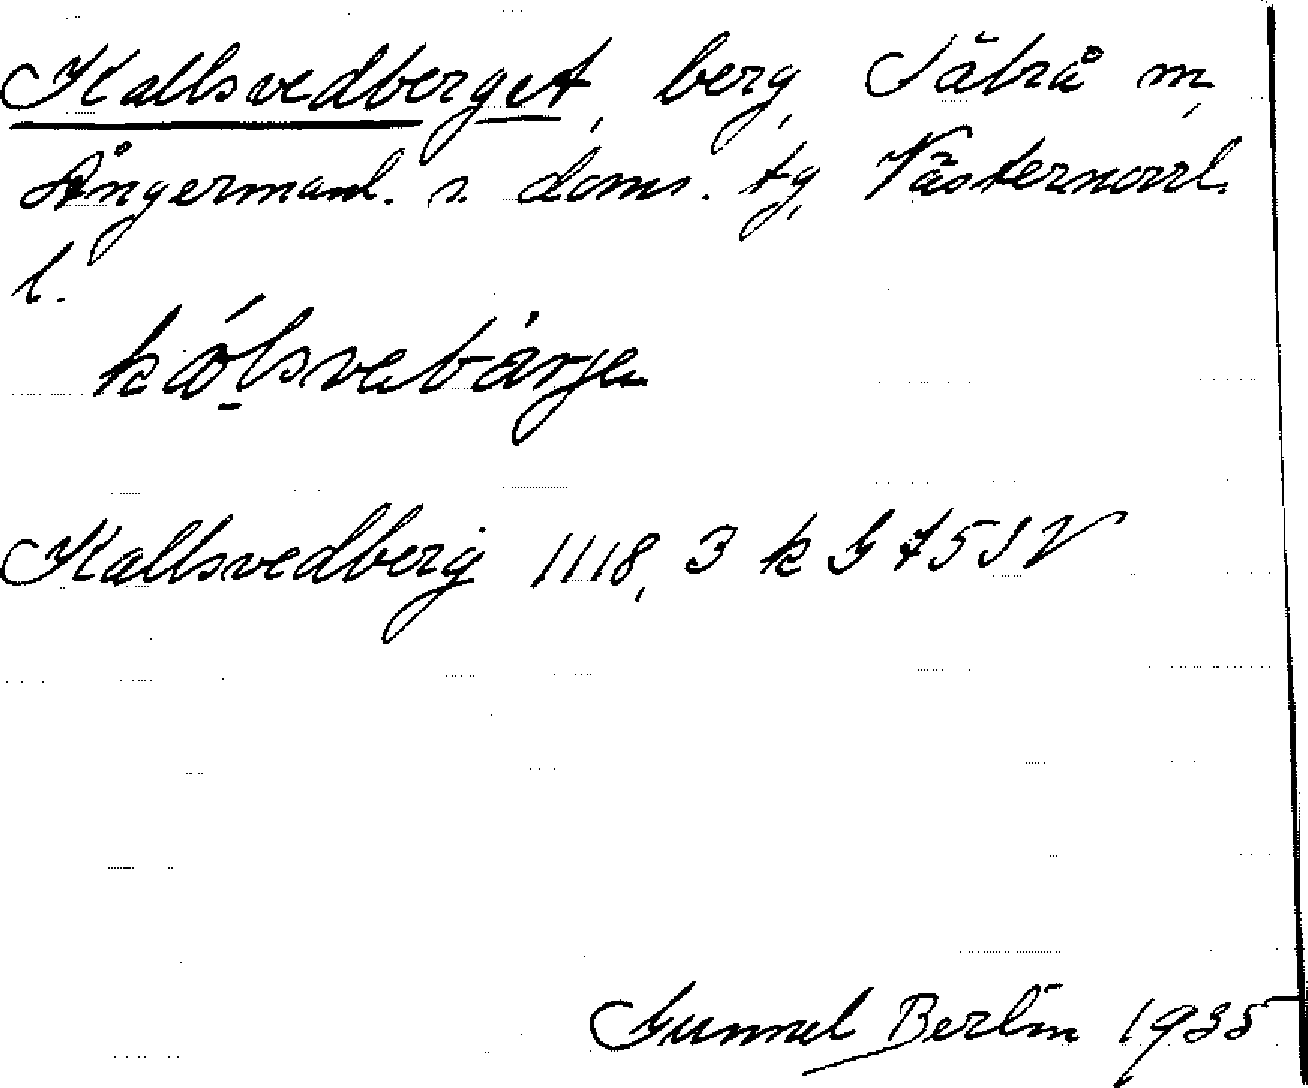 Kallsvedberget, berg, Sätrå sn,
Ångermanl. s. doms. tg, Västernorrl.
l.
kálsvebärje
Kallsvedberg 1118, 3 k G 75 SV
Gunnel Berlin 1935